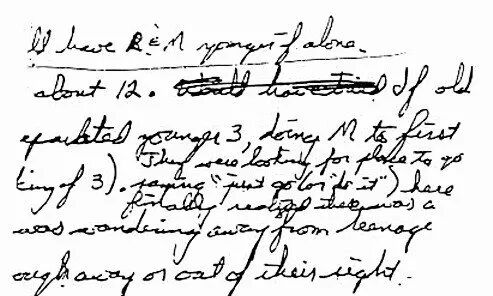 ld have R & M younger if alone.
about 12. If old
eparated younger 3, doing M to first
They were looking for place to go
king of 3). saying "just go for it") here
finally realized there was a
was wandering away from teenage
ough away or out of their sight.